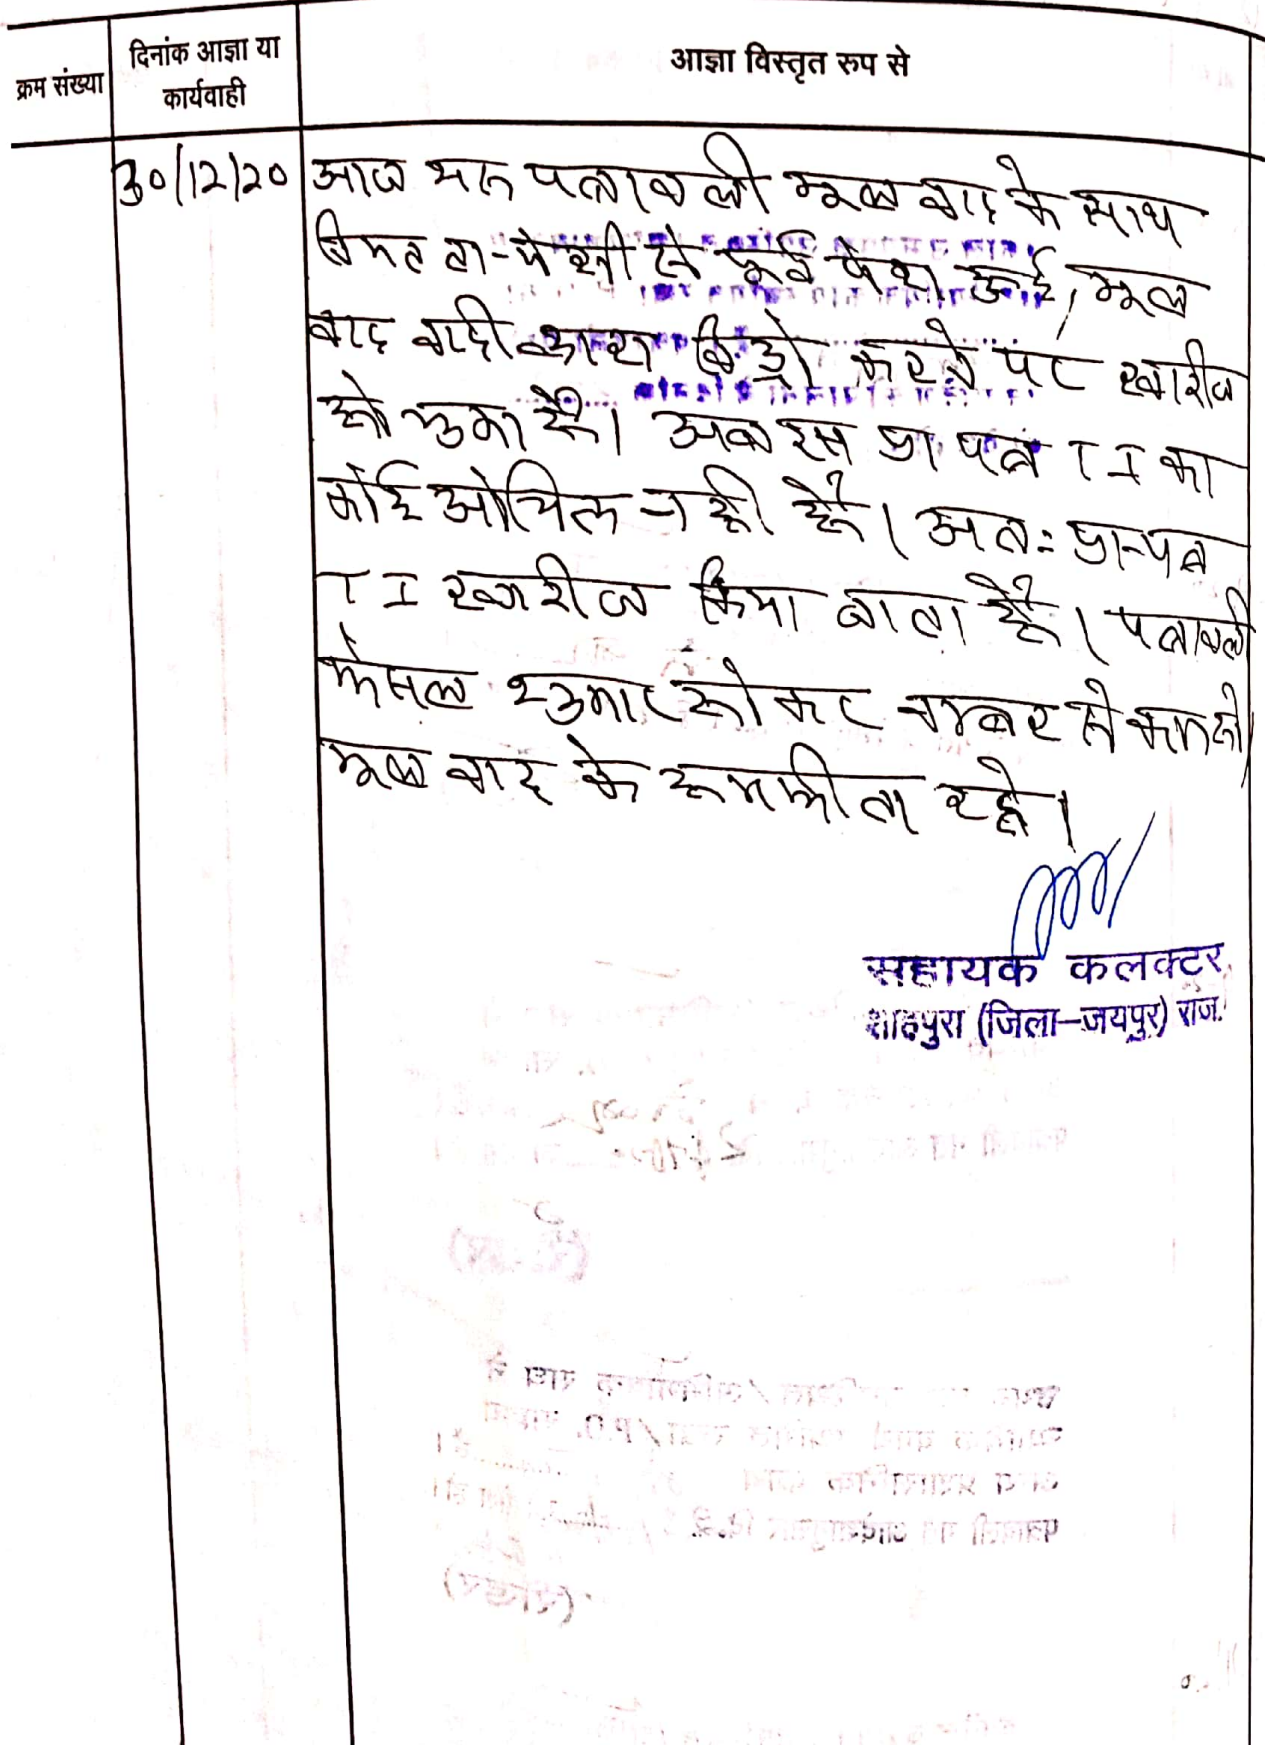 क्रम संख्या
दिनांक आज्ञा या
कार्यवाही
आज्ञा विस्तृत रुप से
30/12/20
आज यह पत्रावली मूल वाद के साथ
नियत ता-पेशी से पूर्व पेश हुई, मूल
वाद वादी द्वारा विड्रो करने पर खारीज
हो चुका है। अब इस प्रा पत्र T I का
कोई ओचित्य नही है। अतः प्रा-पत्र
T I खारीज किया जाता है। पत्रावली
फेसल शुमार होकर नम्बर से कम हो
मूल वाद के हमफीता रहे।
सहायक कलक्टर
शाहपुरा (जिला-जयपुर) राज.